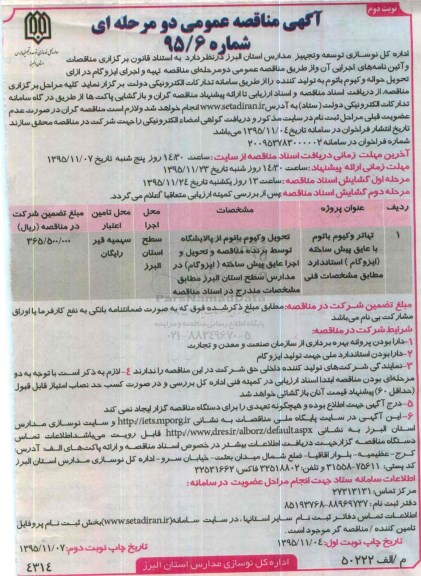 نوبت دوم
آگهی مناقصه عمومی دو مرحله ای
شماره ۹۵/۶
اداره کل نوسازی توسعه وتجهیز مدارس استان البرز درنظردارد به استناد قانون برگزاری مناقصات
و آئین‌نامه‌های اجرایی آن واز طریق مناقصه عمومی دومرحله‌ای مناقصه تهیه و اجرای ایزوگام در ازای
تحویل حواله وکیوم باتوم به تولید کننده را از طریق سامانه تدارکات الکترونیکی دولت برگزار نماید کلیه مراحل برگزاری
مناقصه، از دریافت اسناد مناقصه و اسناد ارزیابی تا ارائه پیشنهاد مناقصه گران و بازگشایی پاکت ها از طریق در گاه سامانه
تدارکات الکترونیکی دولت (ستاد) به آدرس www.setadiran.ir انجام خواهد شد ولازم است مناقصه گران در صورت عدم
عضویت قبلی مراحل ثبت نام در سایت مذکور و دریافت گواهی امضای الکترونیکی را جهت شرکت در مناقصه محقق سازند
تاریخ انتشار فراخوان در سامانه تاریخ ۱۳۹۵/۱۱/۰۴ می‌باشد.
شماره فراخوان در سامانه ۲۰۰۹۵۳۷۸۳۰۰۰۰۰۲
آخرین مهلت زمانی دریافت اسناد مناقصه از سایت: ساعت ۱۴:۳۰ روز پنج شنبه تاریخ ۱۳۹۵/۱۱/۰۷
مهلت زمانی ارائه پیشنهاد: ساعت ۱۴:۳۰ روز شنبه تاریخ ۱۳۹۵/۱۱/۲۳
مرحله اول گشایش اسناد مناقصه: ساعت ۱۳ روز یکشنبه تاریخ ۱۳۹۵/۱۱/۲۴
مرحله دوم گشایش اسناد مناقصه پس از بررسی کمیته ارزیابی متعاقبا اعلام می گردد.
ردیف عنوان پروژه مشخصات محل اجرا محل تامین اعتبار مبلغ تضمین شرکت در مناقصه (ریال)
۱ تهاتر وکیوم باتوم با عایق پیش ساخته (ایزوگام) استاندارد مطابق مشخصات فنی تحویل وکیوم باتوم از پالایشگاه توسط برنده مناقصه و تحویل و اجرا عایق پیش ساخته (ایزوگام) در مدارس سطح استان البرز مطابق مشخصات مندرج در اسناد مناقصه سطح استان البرز سهمیه قیر رایگان ۳۶۵/۵۰۰/۰۰۰
ParsNamadData
پایگاه اطلاع رسانی مناقصه و مزایده
۰۲۱-۸۸۳۴۹۶۷۰-۵
مبلغ تضمین شرکت در مناقصه: مطابق مبلغ ذکرشده فوق که به صورت ضمانتنامه بانکی به نفع کارفرما یا اوراق
مشارکت بی نام می‌باشد
شرایط شرکت در مناقصه:
۱-دارا بودن پروانه بهره برداری از سازمان صنعت و معدن و تجارت
۲-دارا بودن استاندارد ملی جهت تولید ایزوگام
۳-نمایندگی شرکت‌های تولید کننده داخلی حق شرکت در این مناقصه را ندارند ۴-لازم به ذکر است با توجه به دو
مرحله‌ای بودن مناقصه ابتدا اسناد ارزیابی در کمیته فنی اداره کل بررسی و در صورت کسب حد نصاب امتیاز قابل قبول
(حداقل ۶۰) پیشنهاد قیمت آنان بازگشائی خواهد شد
۵-درج آگهی جهت اطلاع بوده و هیچگونه تعهدی را برای دستگاه مناقصه گزار ایجاد نمی کند
۶-این آگهی در سایت پایگاه ملی مناقصات به نشانی http://iets.mporg.ir و سایت نوسازی مدارس
استان البرز به نشانی http://www.dres.ir/alborz/default.aspx قابل رویت می‌باشد اطلاعات تماس
دستگاه مناقصه گزار جهت دریافت اطلاعات بیشتر در خصوص اسناد مناقصه و ارائه پاکت‌های الف آدرس:
کرج- عظیمیه- بلوار آقاقیا- ضلع شمال میدان بعثت- خیابان سرو- اداره کل نوسازی مدارس استان البرز
کد پستی: ۳۱۵۵۸-۷۵۶۱۱ و تلفن: ۳۲۵۱۸۸۰۲ فاکس ۳۲۵۳۱۶۶۲
اطلاعات سامانه ستاد جهت انجام مراحل عضویت در سامانه:
مرکز تماس: ۲۷۳۱۳۱۳۱
دفتر ثبت نام: ۸۸۹۶۹۷۳۷-۸۵۱۹۳۷۶۸
اطلاعات تماس دفاتر ثبت نام سایر استانها، در سایت سامانه (www.setadiran.ir) بخش ثبت نام پروفایل
تامین کننده / مناقصه گر موجود است.
تاریخ چاپ نوبت اول: ۱۳۹۵/۱۱/۰۴ تاریخ چاپ نوبت دوم: ۱۳۹۵/۱۱/۰۷
م /الف ۵۰۲۲۲ اداره کل نوسازی مدارس استان البرز ۴۳۱۴